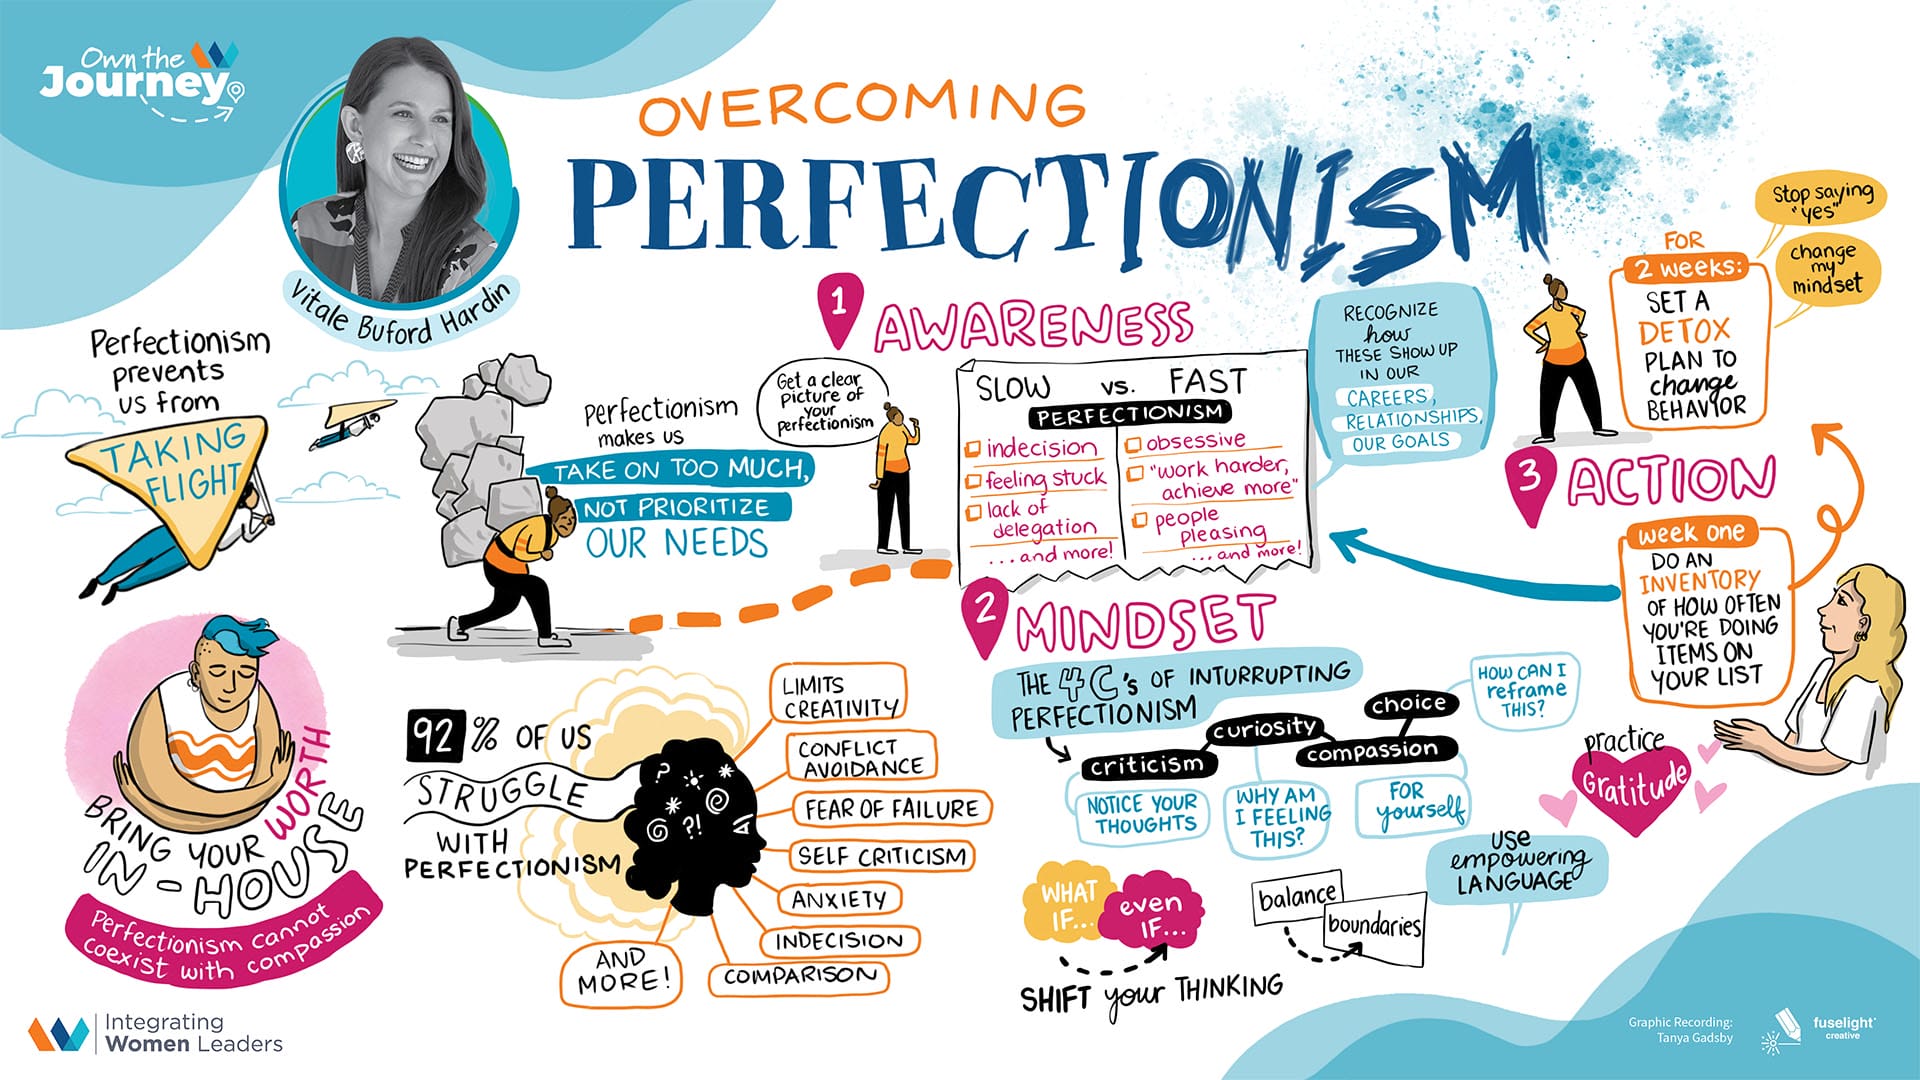 Own the
Journey
Vitale Buford Hardin
OVERCOMING
PERFECTIONISM
Perfectionism
prevents
us from
TAKING
FLIGHT
perfectionism
makes us
TAKE ON TOO MUCH,
NOT PRIORITIZE
OUR NEEDS
BRING YOUR WORTH
IN-HOUSE
Perfectionism cannot
coexist with compassion
92% OF US
STRUGGLE
WITH
PERFECTIONISM
?
?!
LIMITS
CREATIVITY
CONFLICT
AVOIDANCE
FEAR OF FAILURE
SELF CRITICISM
ANXIETY
INDECISION
COMPARISON
AND
MORE!
1 AWARENESS
Get a clear
picture of
your
perfectionism
SLOW vs. FAST
PERFECTIONISM
indecision
feeling stuck
lack of
delegation
...and more!
obsessive
"work harder,
achieve more"
people
pleasing
...and more!
RECOGNIZE
how
THESE SHOW UP
IN OUR
CAREERS,
RELATIONSHIPS,
OUR GOALS
2 MINDSET
THE 4C's OF INTURRUPTING
PERFECTIONISM
criticism
NOTICE YOUR
THOUGHTS
curiosity
WHY AM
I FEELING
THIS?
compassion
FOR
yourself
choice
HOW CAN I
reframe
THIS?
WHAT
IF...
even
IF...
SHIFT your THINKING
balance
boundaries
USE
empowering
LANGUAGE
practice
Gratitude
3 ACTION
week one
DO AN
INVENTORY
OF HOW OFTEN
YOU'RE DOING
ITEMS ON
YOUR LIST
FOR
2 weeks:
SET A
DETOX
PLAN TO
change
BEHAVIOR
Stop saying
"yes"
change
my
mindset
Integrating
Women Leaders
Graphic Recording:
Tanya Gadsby
fuselight
creative